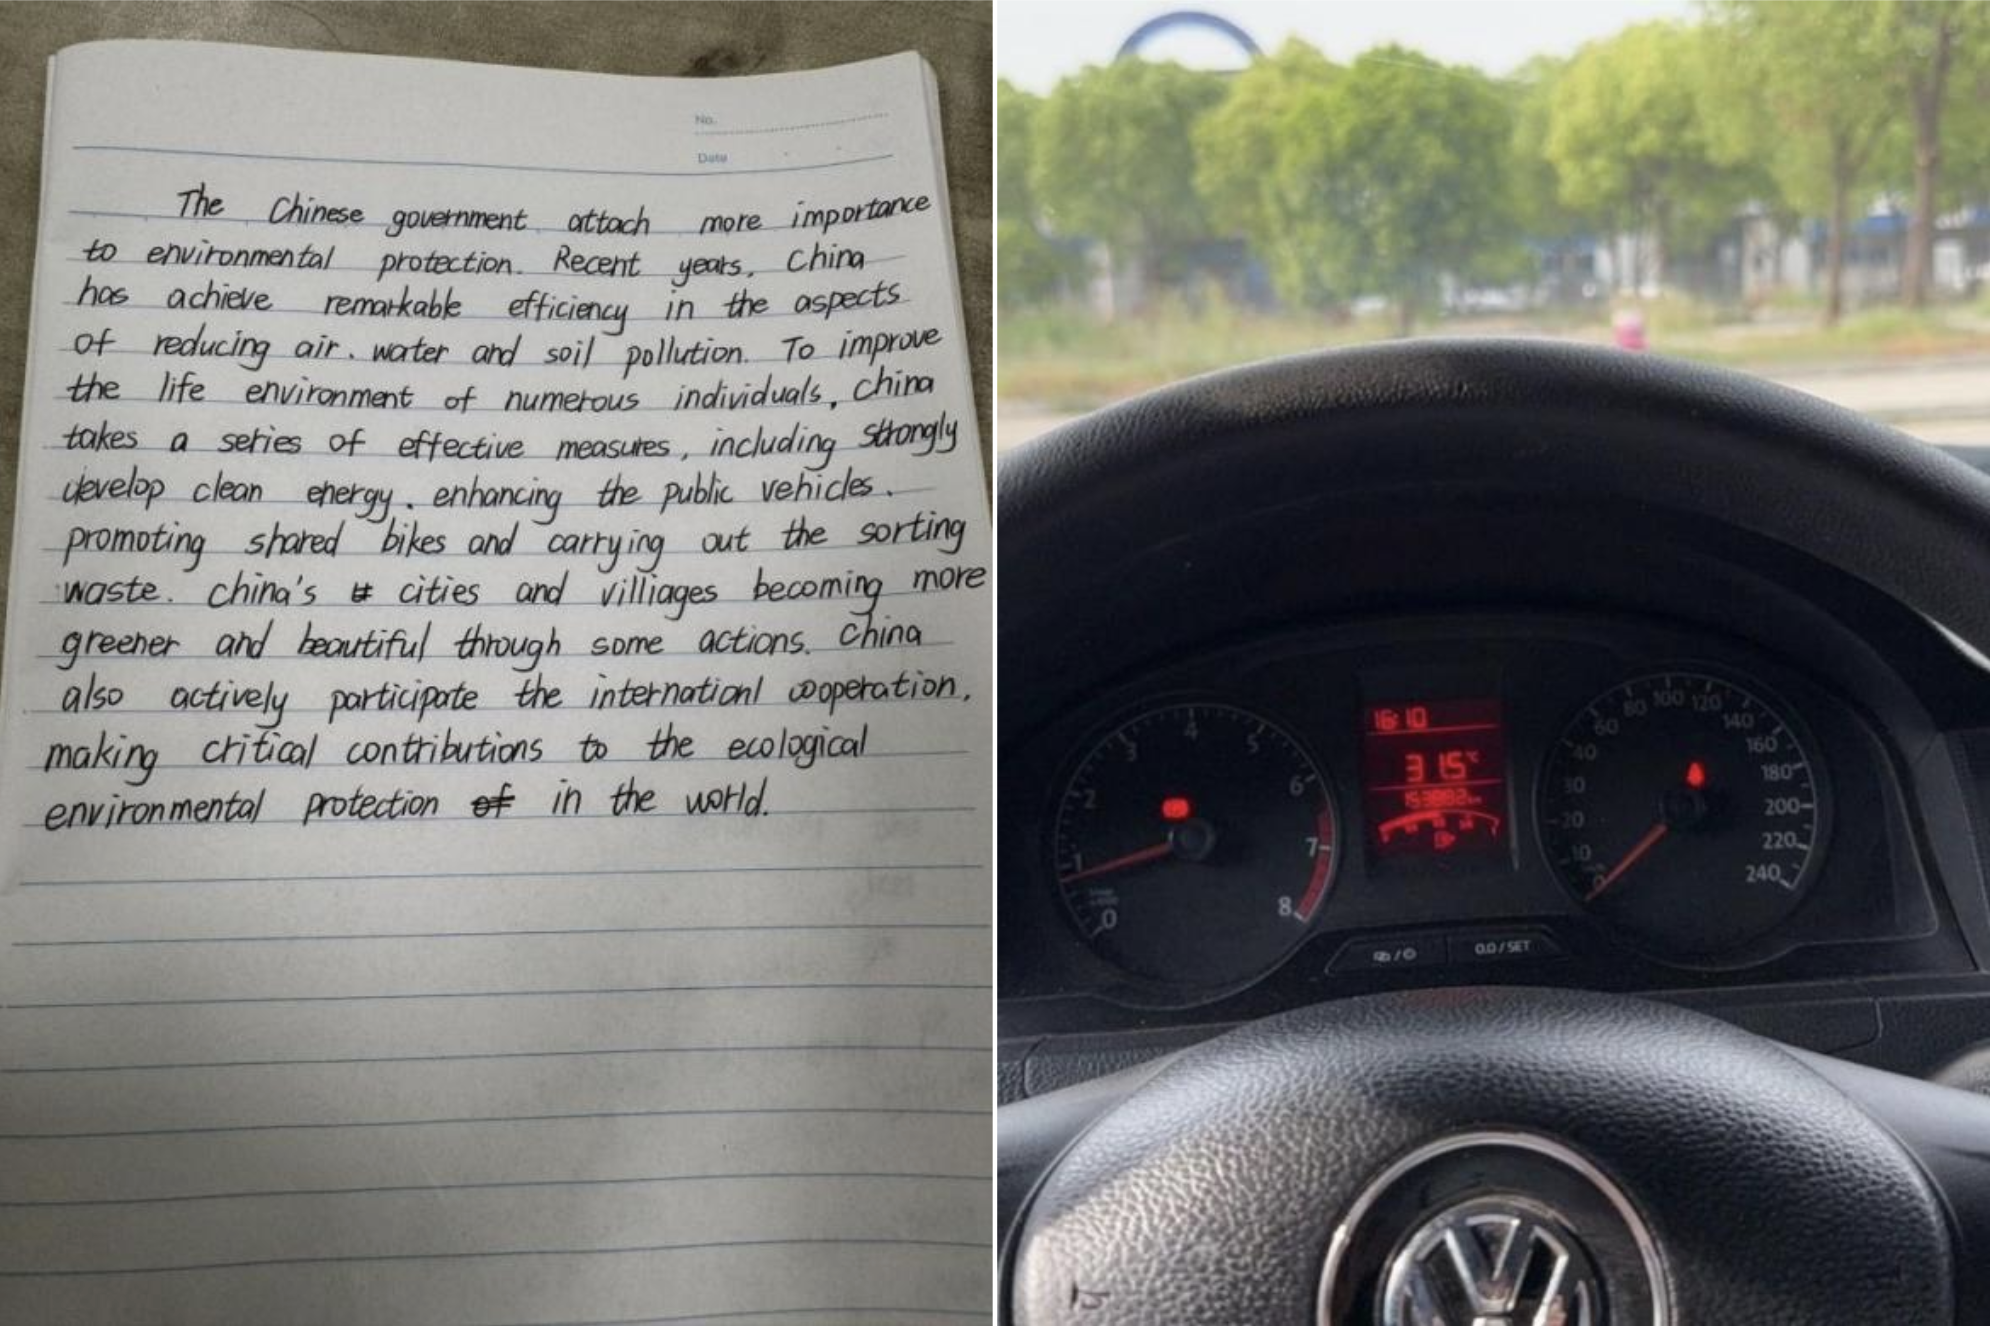 No.
Date
The Chinese government attach more importance
to environmental protection. Recent years, China
has achieve remarkable efficiency in the aspects
of reducing air, water and soil pollution. To improve
the life environment of numerous individuals, China
takes a series of effective measures, including strongly
develop clean energy, enhancing the public vehicles,
promoting shared bikes and carrying out the sorting
waste. China's cities and villiages becoming more
greener and beautiful through some actions. China
also actively participate the internationl cooperation,
making critical contributions to the ecological
environmental protection of in the world.
16:10
31.5°C
0 1 2 3 4 5 6 7 8
0 10 20 30 40 60 80 100 120 140 160 180 200 220 240
0.0 / SET